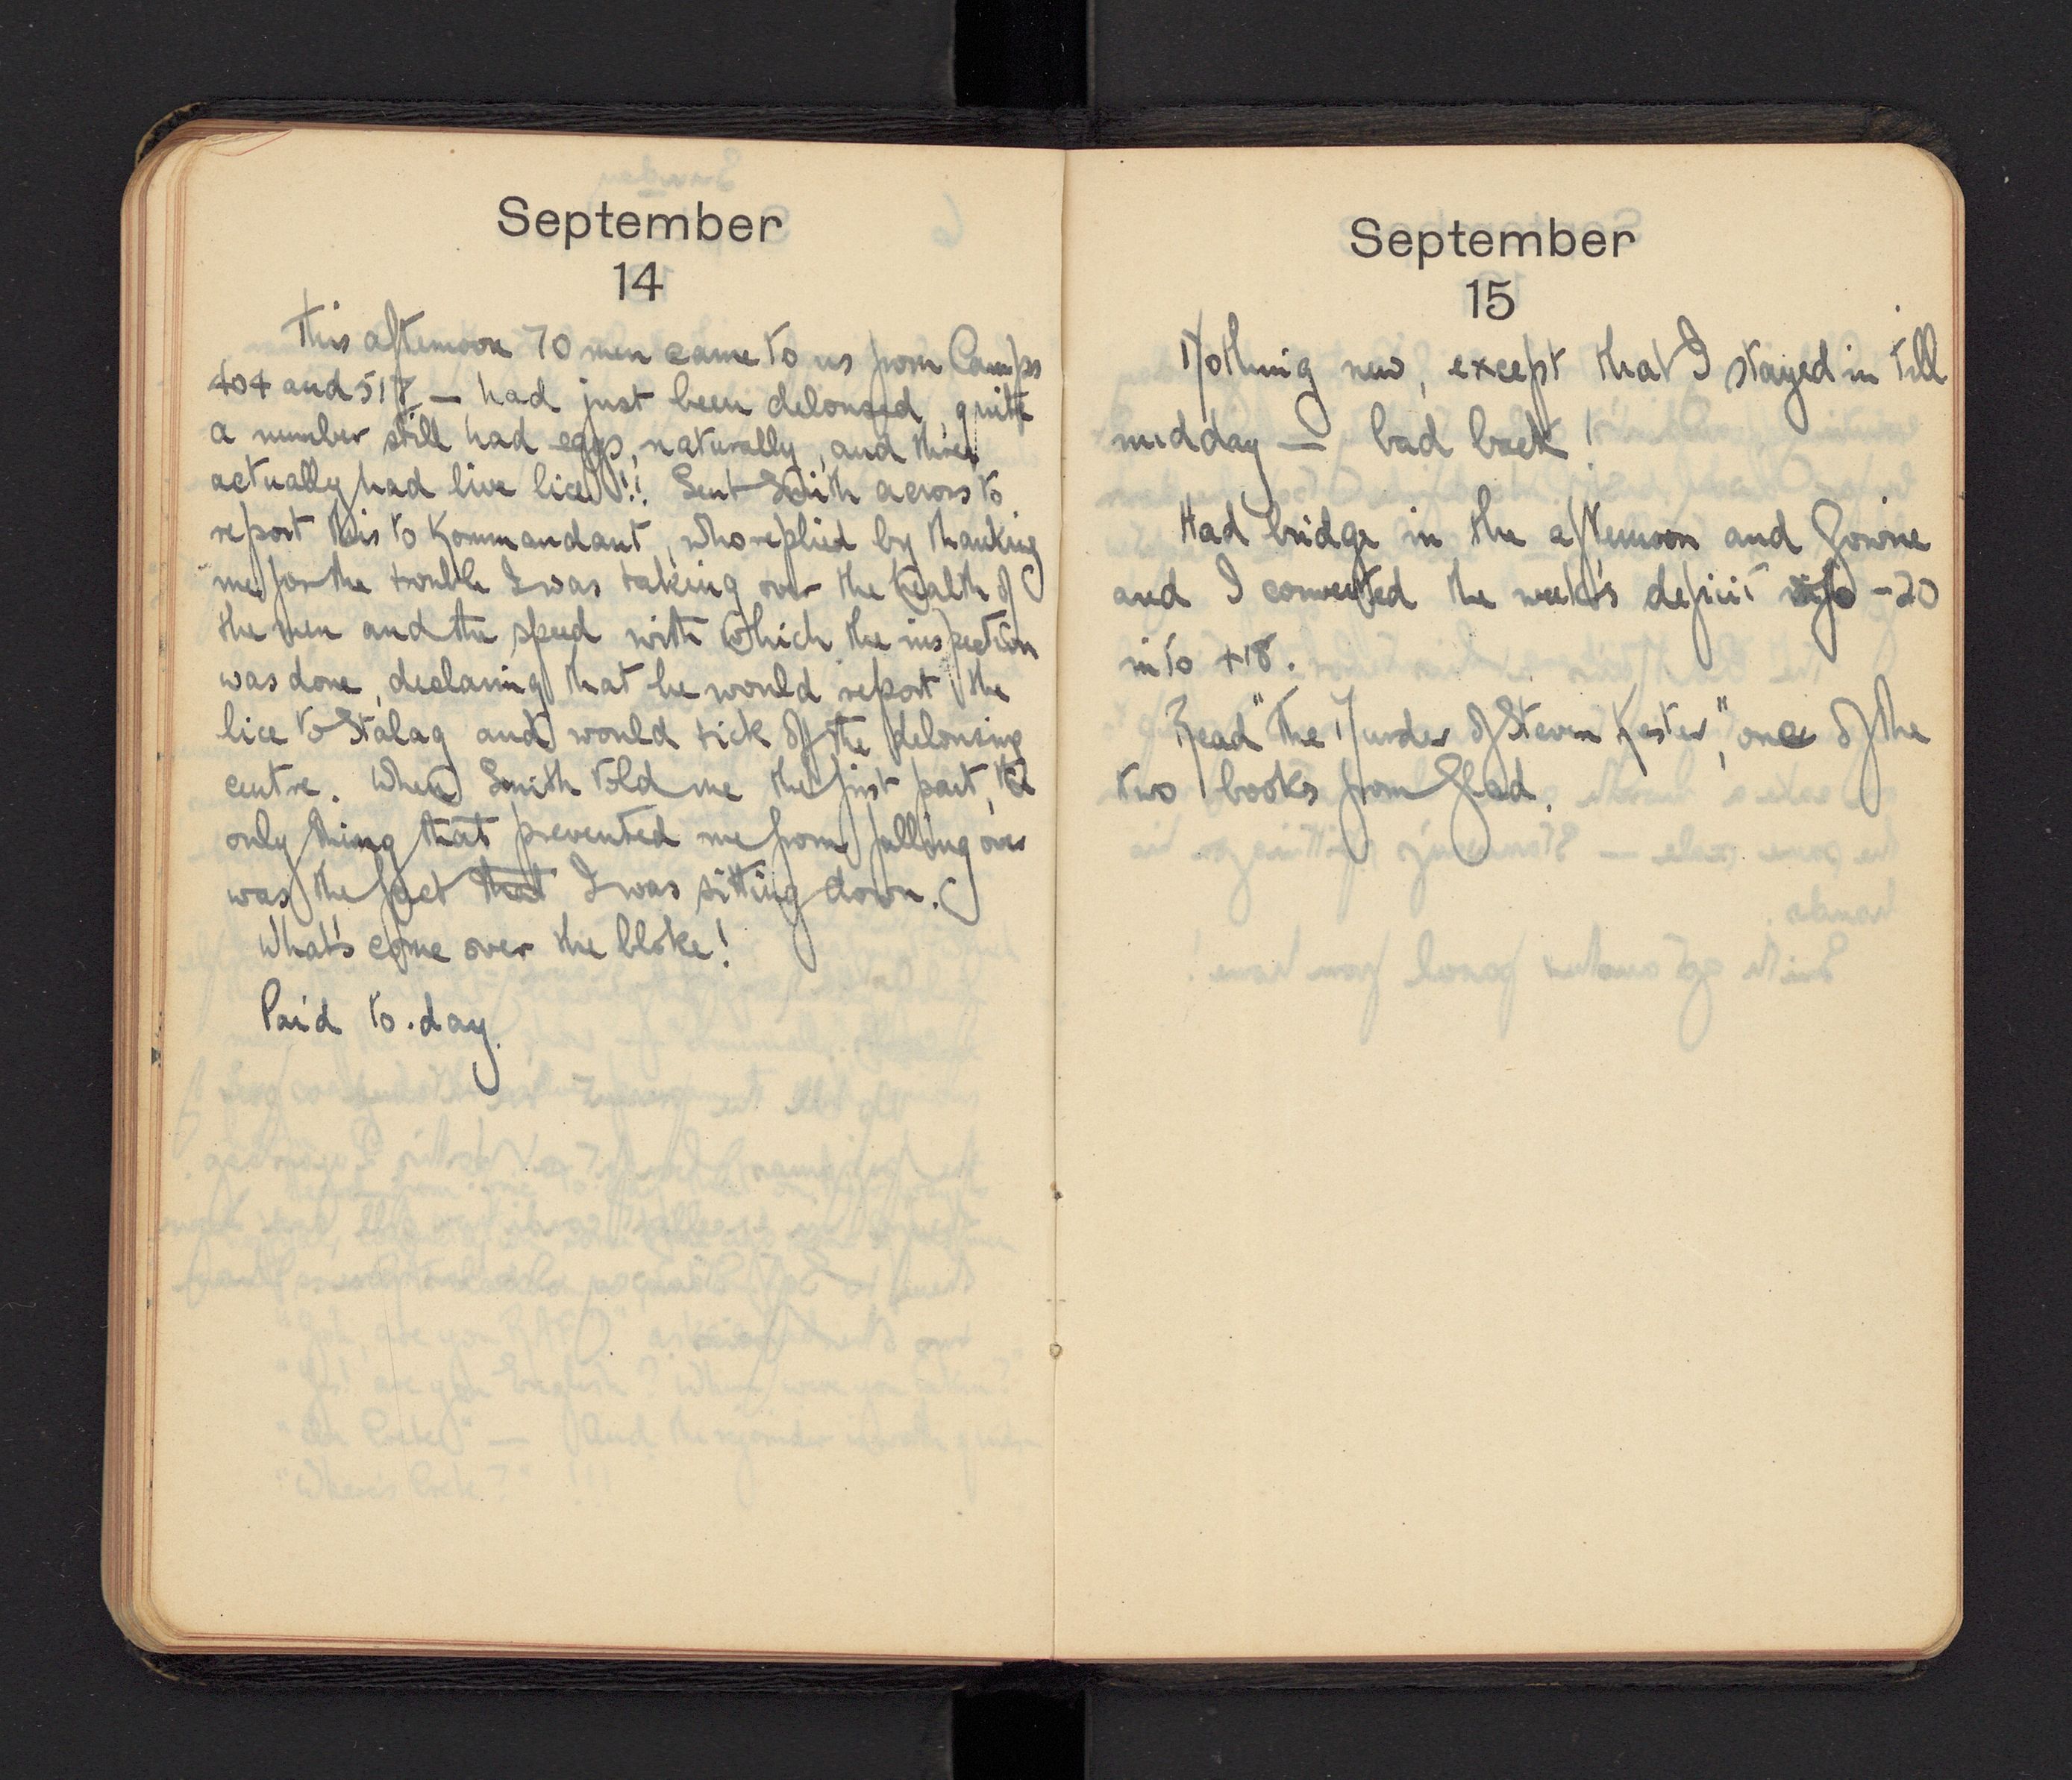 September
14
This afternoon 70 men came to us from Camps
404 and 517 — had just been deloused, quite
a number still had eggs, naturally, and three
actually had live lice!!! Sent Smith across to
report this to Kommandant, who replied by thanking
me for the trouble I was taking over the health of
the men and the speed with which the inspection
was done, declaring that he would report the
lice to Stalag and would tick off the delousing
centre. When Smith told me the first part, the
only thing that prevented me from falling over
was the fact that I was sitting down.
What's come over the bloke!
Paid to.day.
September
15
Nothing new, except that I stayed in till
midday — bad back!
Had bridge in the afternoon and Gowrie
and I converted the week's deficit -20
into +18.
Read "The Murder of Steven Kester", one of the
two books from Glad.